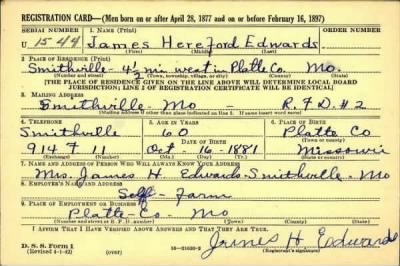 REGISTRATION CARD—(Men born on or after April 28, 1877 and on or before February 16, 1897)
SERIAL NUMBER 1. NAME (Print) ORDER NUMBER
U 1544 James Hereford Edwards
(First) (Middle) (Last)
2. PLACE OF RESIDENCE (Print)
Smithville - 4½ mi west in Platte Co. Mo.
(Number and street) (Town, township, village, or city) (County) (State)
[THE PLACE OF RESIDENCE GIVEN ON THE LINE ABOVE WILL DETERMINE LOCAL BOARD
JURISDICTION; LINE 2 OF REGISTRATION CERTIFICATE WILL BE IDENTICAL]
3. MAILING ADDRESS
Smithville Mo - R.F.D. #2
[Mailing address if other than place indicated on line 2. If same insert word same]
4. TELEPHONE 5. AGE IN YEARS 6. PLACE OF BIRTH
Smithville 60 Platte Co
DATE OF BIRTH (Town or county)
914 F 11 Oct - 16 - 1881 Missouri
(Exchange) (Number) (Mo.) (Day) (Yr.) (State or country)
7. NAME AND ADDRESS OF PERSON WHO WILL ALWAYS KNOW YOUR ADDRESS
Mrs. James H. Edwards - Smithville - Mo
8. EMPLOYER'S NAME AND ADDRESS
Self - Farm
9. PLACE OF EMPLOYMENT OR BUSINESS
Platte - Co - Mo
(Number and street or R. F. D. number) (Town) (County) (State)
I AFFIRM THAT I HAVE VERIFIED ABOVE ANSWERS AND THAT THEY ARE TRUE.
D. S. S. Form 1
(Revised 4-1-42) (over) 16—21630-2 James H Edwards
(Registrant's signature)